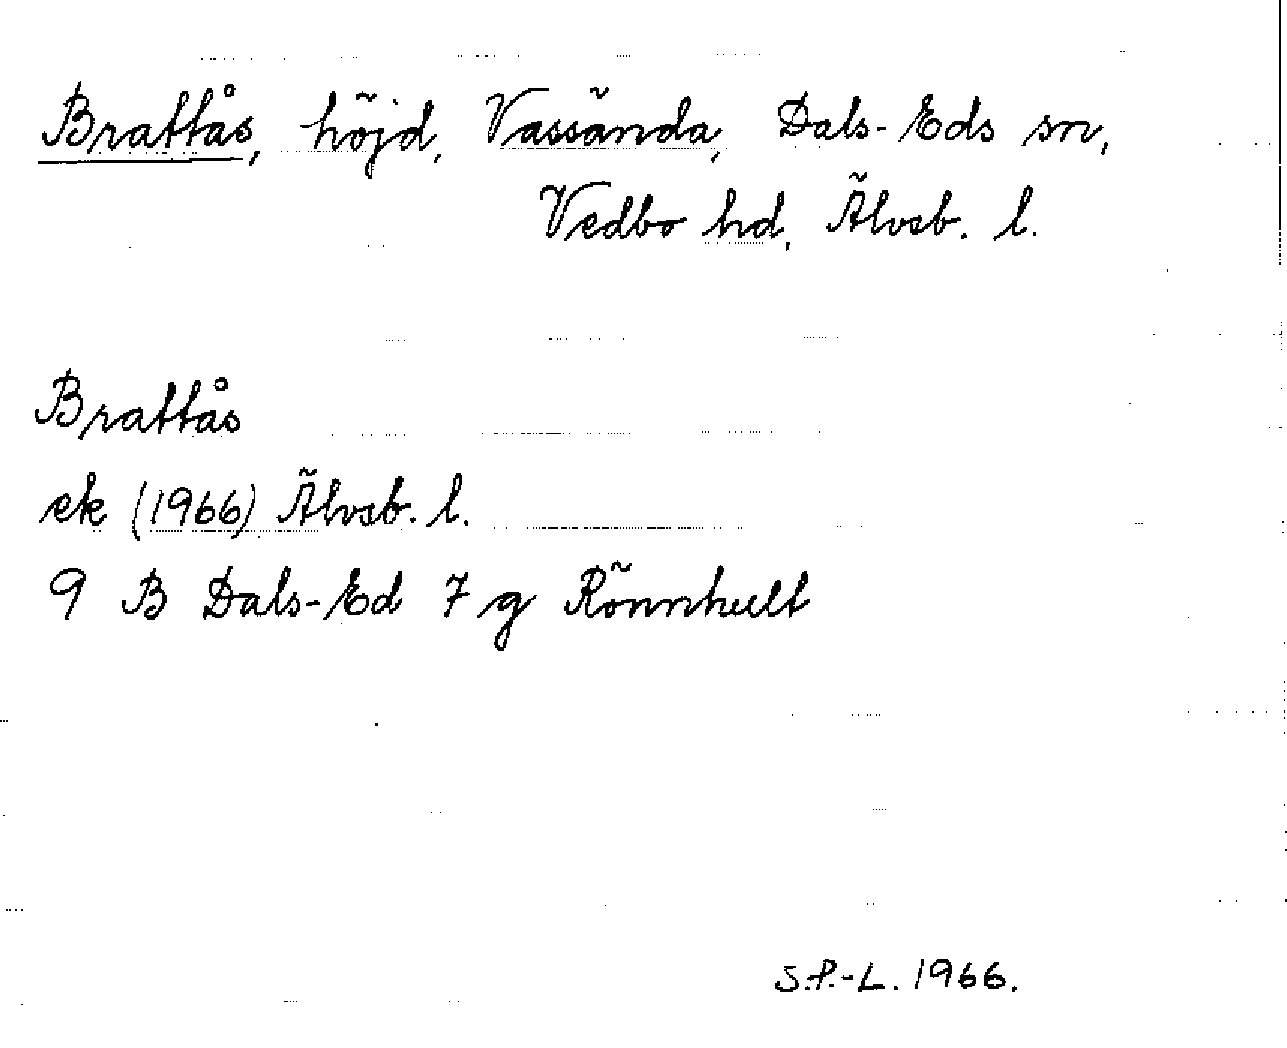 Brattås, höjd, Vassända, Dals-Eds sn,
Vedbo hd, Älvsb. l.
Brattås
ek (1966) Älvsb. l.
9 B Dals-Ed 7 g Rönnhult
S.P.-L. 1966.